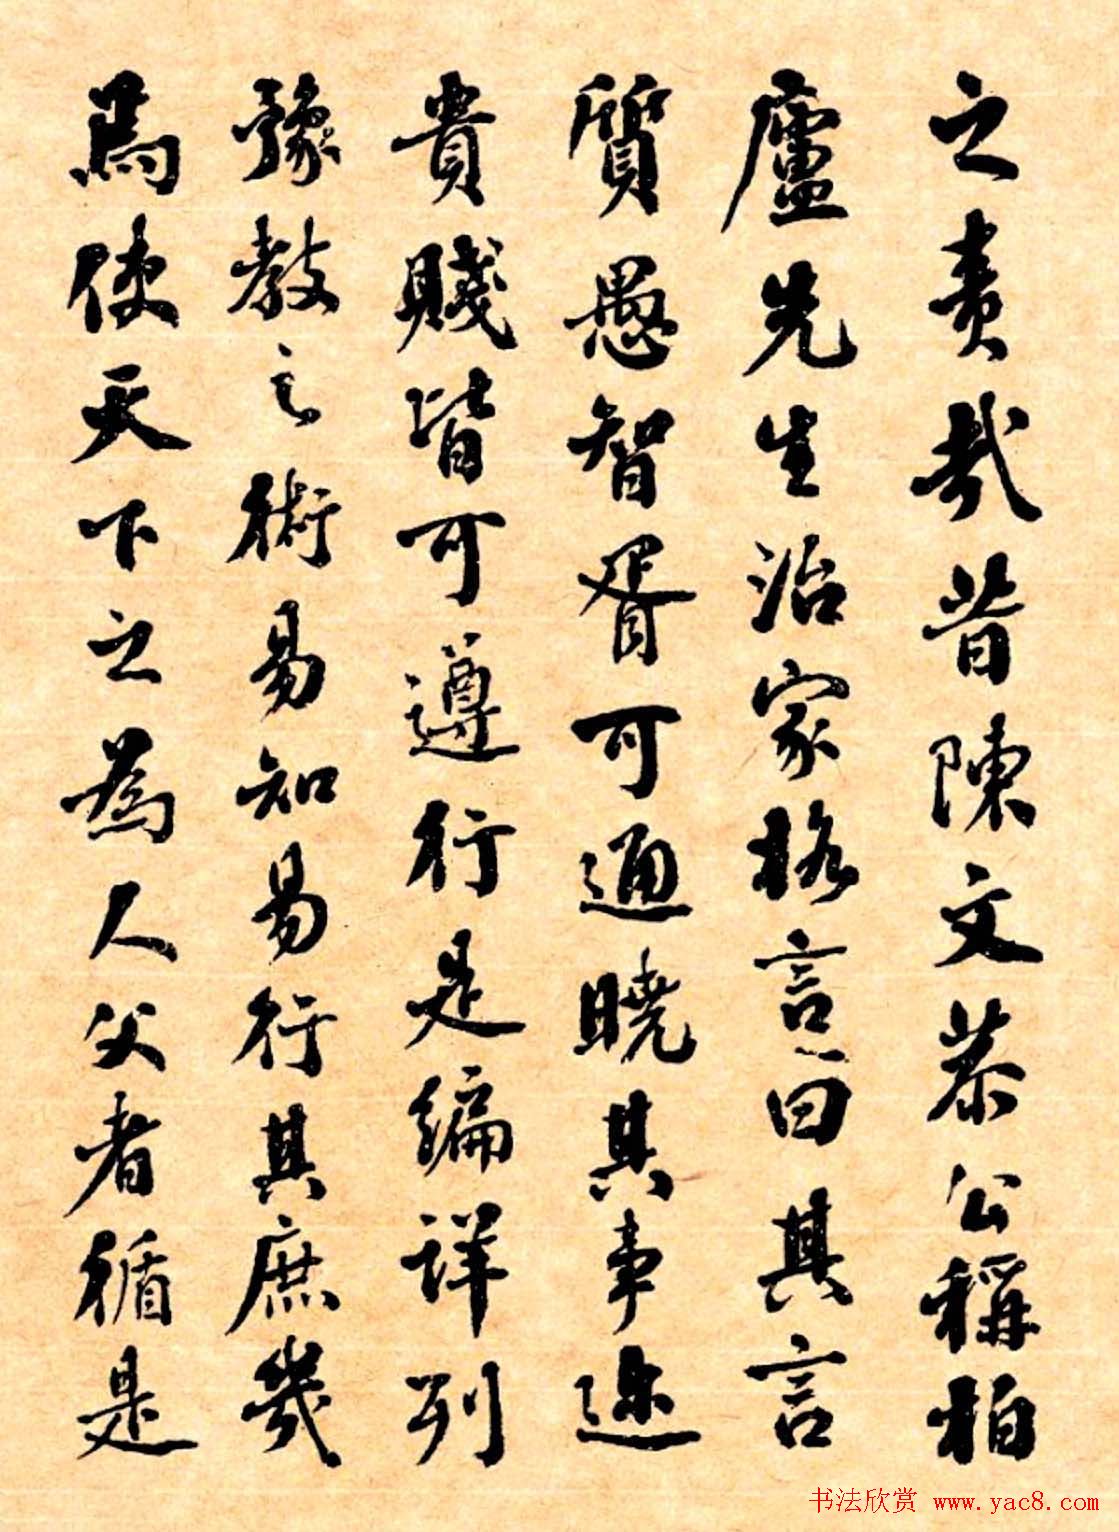 之責哉昔陳文恭公稱柏
廬先生治家格言曰其言
質愚智胥可通曉其事迩
貴賤皆可遵行是編詳列
豫教之術易知易行其庶幾
焉使天下之為人父者循是
书法欣赏 www.yac8.com